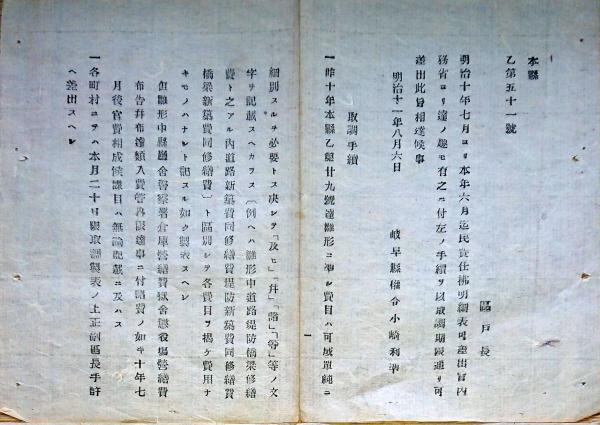 本縣
乙第五十一號
區戸長
明治十年七月ヨリ本年六月迄民費仕拂明細表可差出旨内
務省ヨリ達ノ趣モ有之ニ付左ノ手續ヲ以取調期限通リ可
差出此旨相達候事
明治十一年八月六日
岐阜縣權令小崎利準
取調手續
一昨十年本縣乙第廿九號達雛形ニ準シ費目ハ可成單純ニ
細別スルヲ必要トス決シテ「及ヒ」「幷」「諸」「等」等ノ文
字ヲ記載スヘカラス(例ヘハ雛形中道路堤防橋梁修繕
費トアル内道路新築費同修繕費堤防新築費同修繕費
橋梁新築費同修繕費)ト區別シテ各費目ヲ揭ケ費用ナ
キモノハナシト記スル如ク製表スヘシ
但雛形中縣廳舎警察署倉庫營繕費獄舎懲役場營繕費
布告幷布達類入費管内限達事ニ付諸費ノ如キ十年七
月後官費相成候課目ハ無論記載ニ及ハス
一各町村ニテハ本月二十日限取調製表ノ上正副區長手許
ヘ差出スヘシ